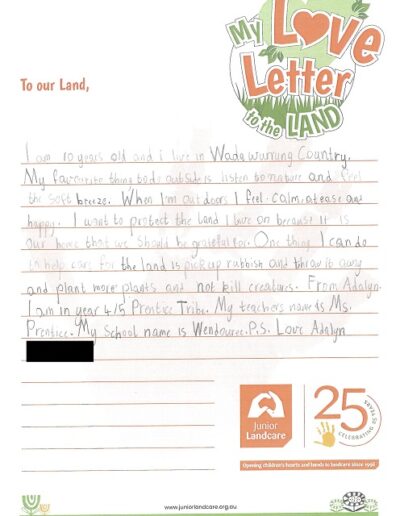 My Love
Letter
to the LAND
To our Land,
I am 10 years old and i live in Wada wurrung Country.
My favourite thing to do outside is listen to nature and feel
the soft breeze. When I'm outdoors I feel calm, at ease and
happy. I want to protect the land I live on because it is
our home that we should be grateful for. One thing I can do
to help care for the land is pick up rubbish and throw it away
and plant more plants and not kill creatures. From Adalyn.
I am in year 4/5 Prentice Tribe. My teachers name is Ms.
Prentice. My School name is Wendouree. P.S. Love Adalyn
Junior
Landcare
25
CELEBRATING 25 YEARS
Opening children's hearts and hands to landcare since 1998
www.juniorlandcare.org.au